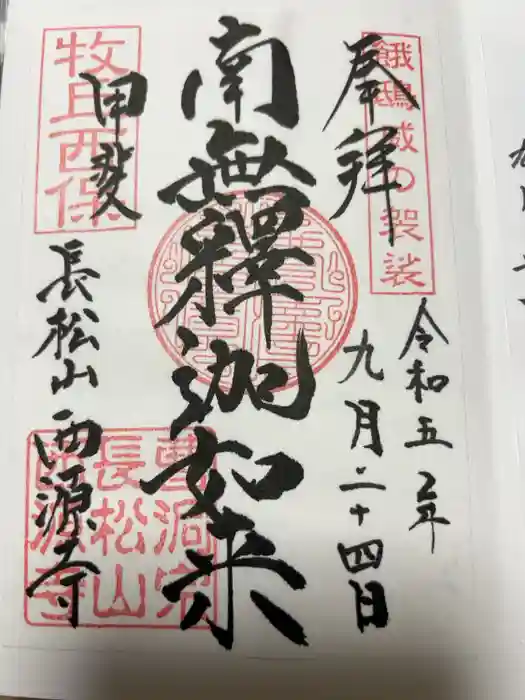 奉拝
餓鴟威の袈裟
令和五年
九月二十四日
南無釋迦如来
牧丘西保
甲斐
長松山西源寺
曹洞宗
長松山
西源寺